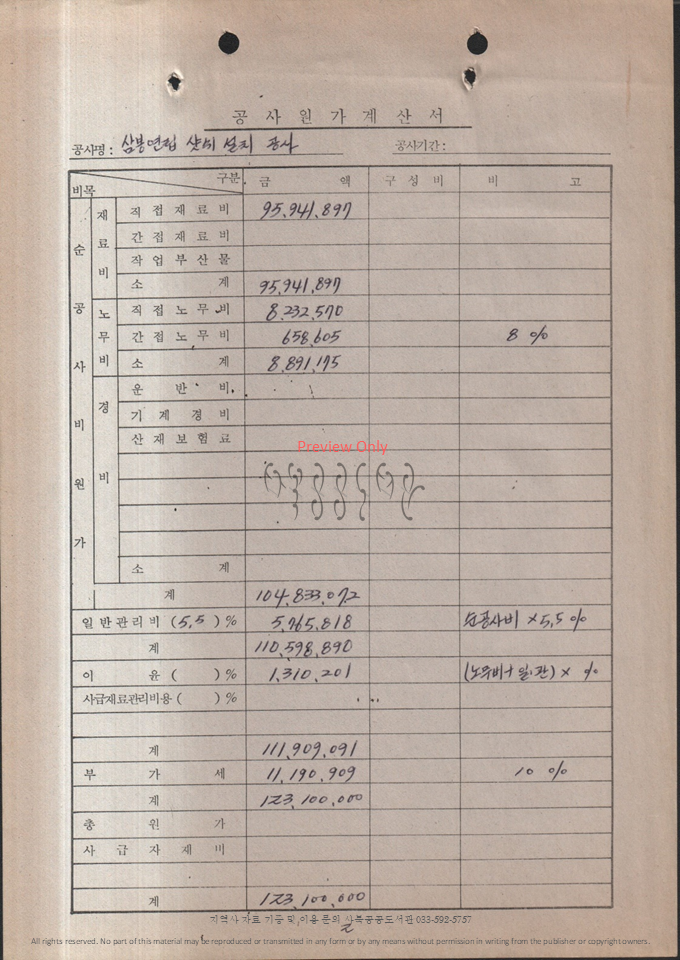 공 사 원 가 계 산 서
공사명 : 삼봉연립 샷시 설치 공사 공사기간 :
비목 구분 금 액 구 성 비 비 고
순 공 사 비 원 가
재 료 비 직 접 재 료 비 95,941,897
간 접 재 료 비
작 업 부 산 물
소 계 95,941,897
노 무 비 직 접 노 무 비 8,232,570
간 접 노 무 비 658,605 8 %
소 계 8,891,175
경 비 운 반 비
기 계 경 비
산 재 보 험 료
Preview Only
소 계
계 104,833,072
일 반 관 리 비 (5,5) % 5,765,818 순공사비 × 5,5 %
계 110,598,890
이 윤 ( ) % 1,310,201 (노무비+일.관) × %
사급재료관리비용 ( ) %
계 111,909,091
부 가 세 11,190,909 10 %
계 123,100,000
총 원 가
사 급 자 재 비
계 123,100,000
지역사 자료 기증 및 이용 문의 사북공공도서관 033-592-5757
2
All rights reserved. No part of this material may be reproduced or transmitted in any form or by any means without permission in writing from the publisher or copyright owners.